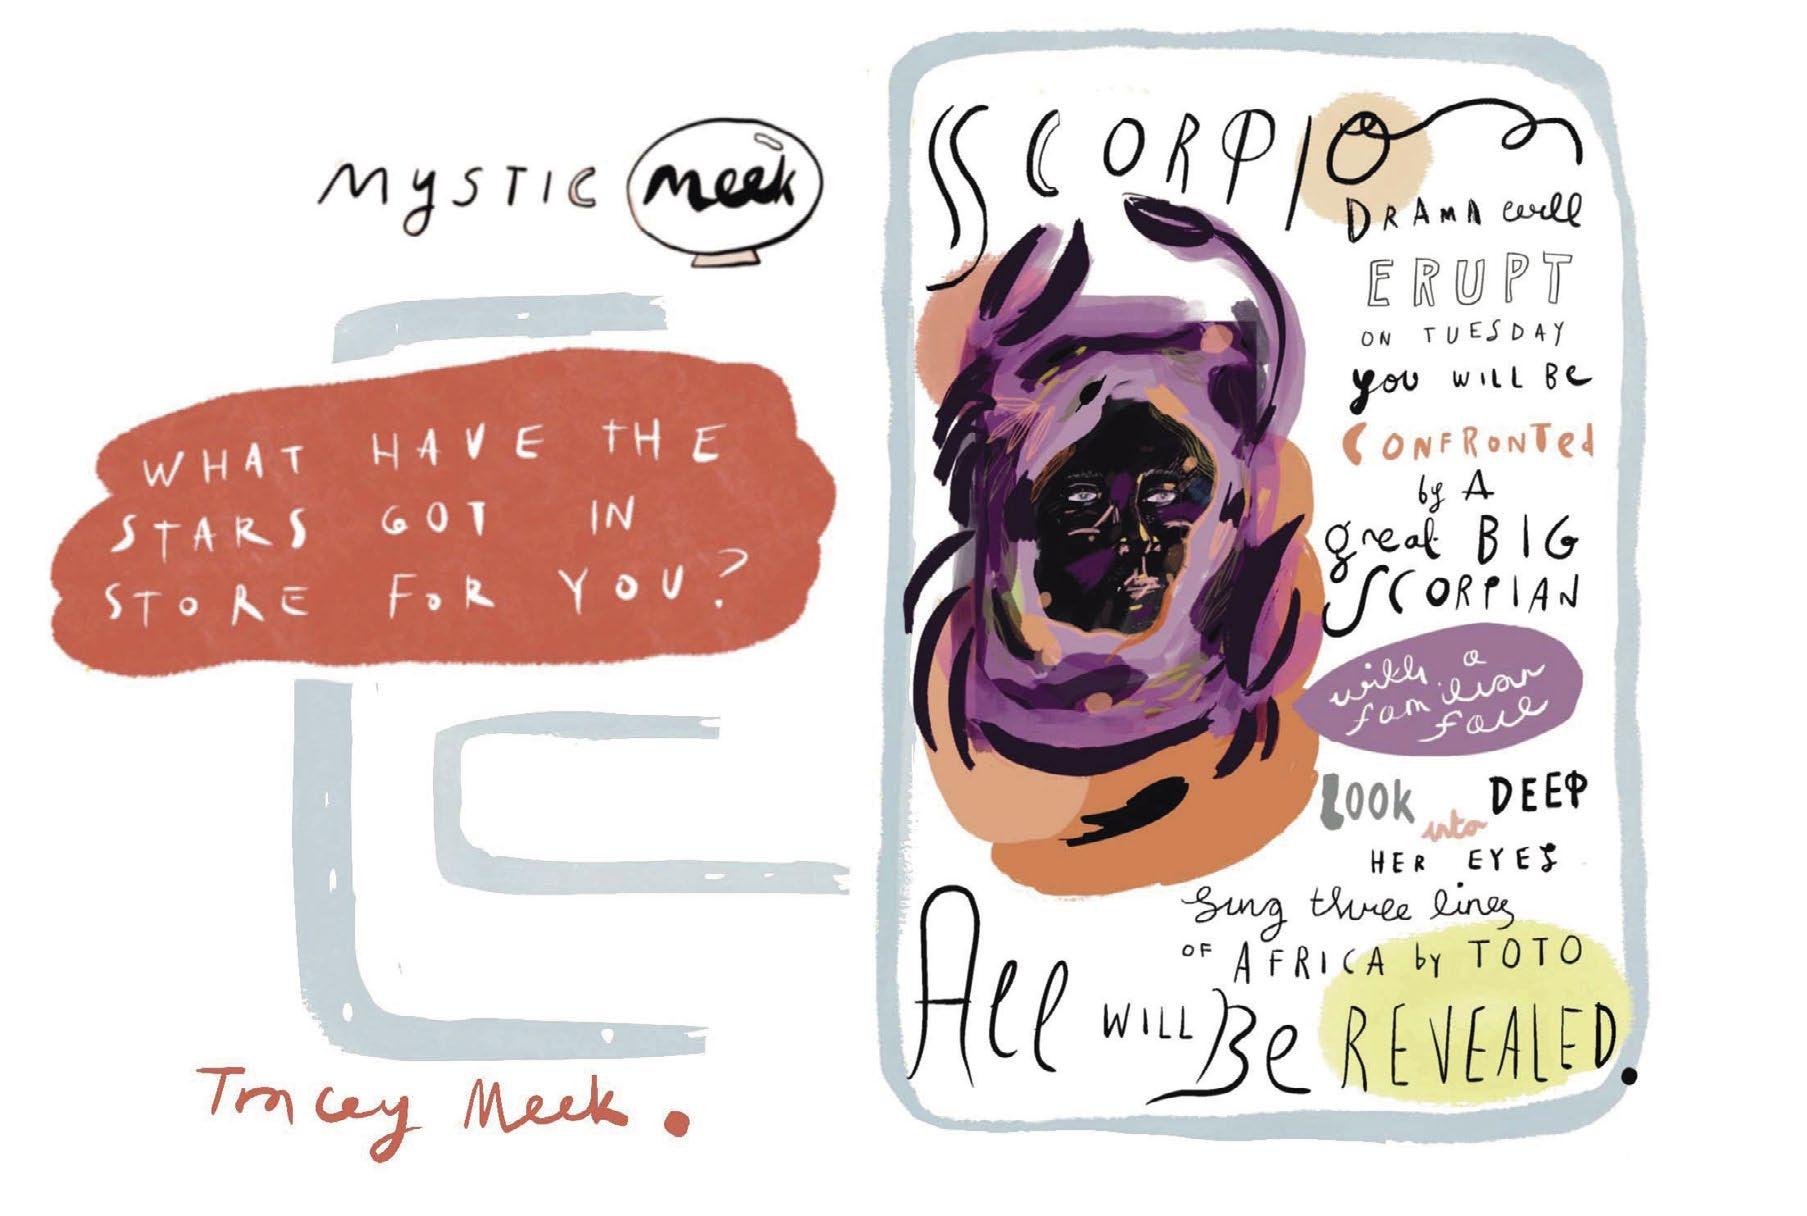 MYSTIC meek
WHAT HAVE THE
STARS GOT IN
STORE FOR YOU?
Tracey Meek.
SCORPIO
DRAMA will
ERUPT
ON TUESDAY
you WILL BE
CONFRONTED
by A
great BIG
SCORPIAN
with a
familiar
face
LOOK into DEEP
HER EYES
Sing three lines
OF AFRICA by TOTO
All WILL Be REVEALED.